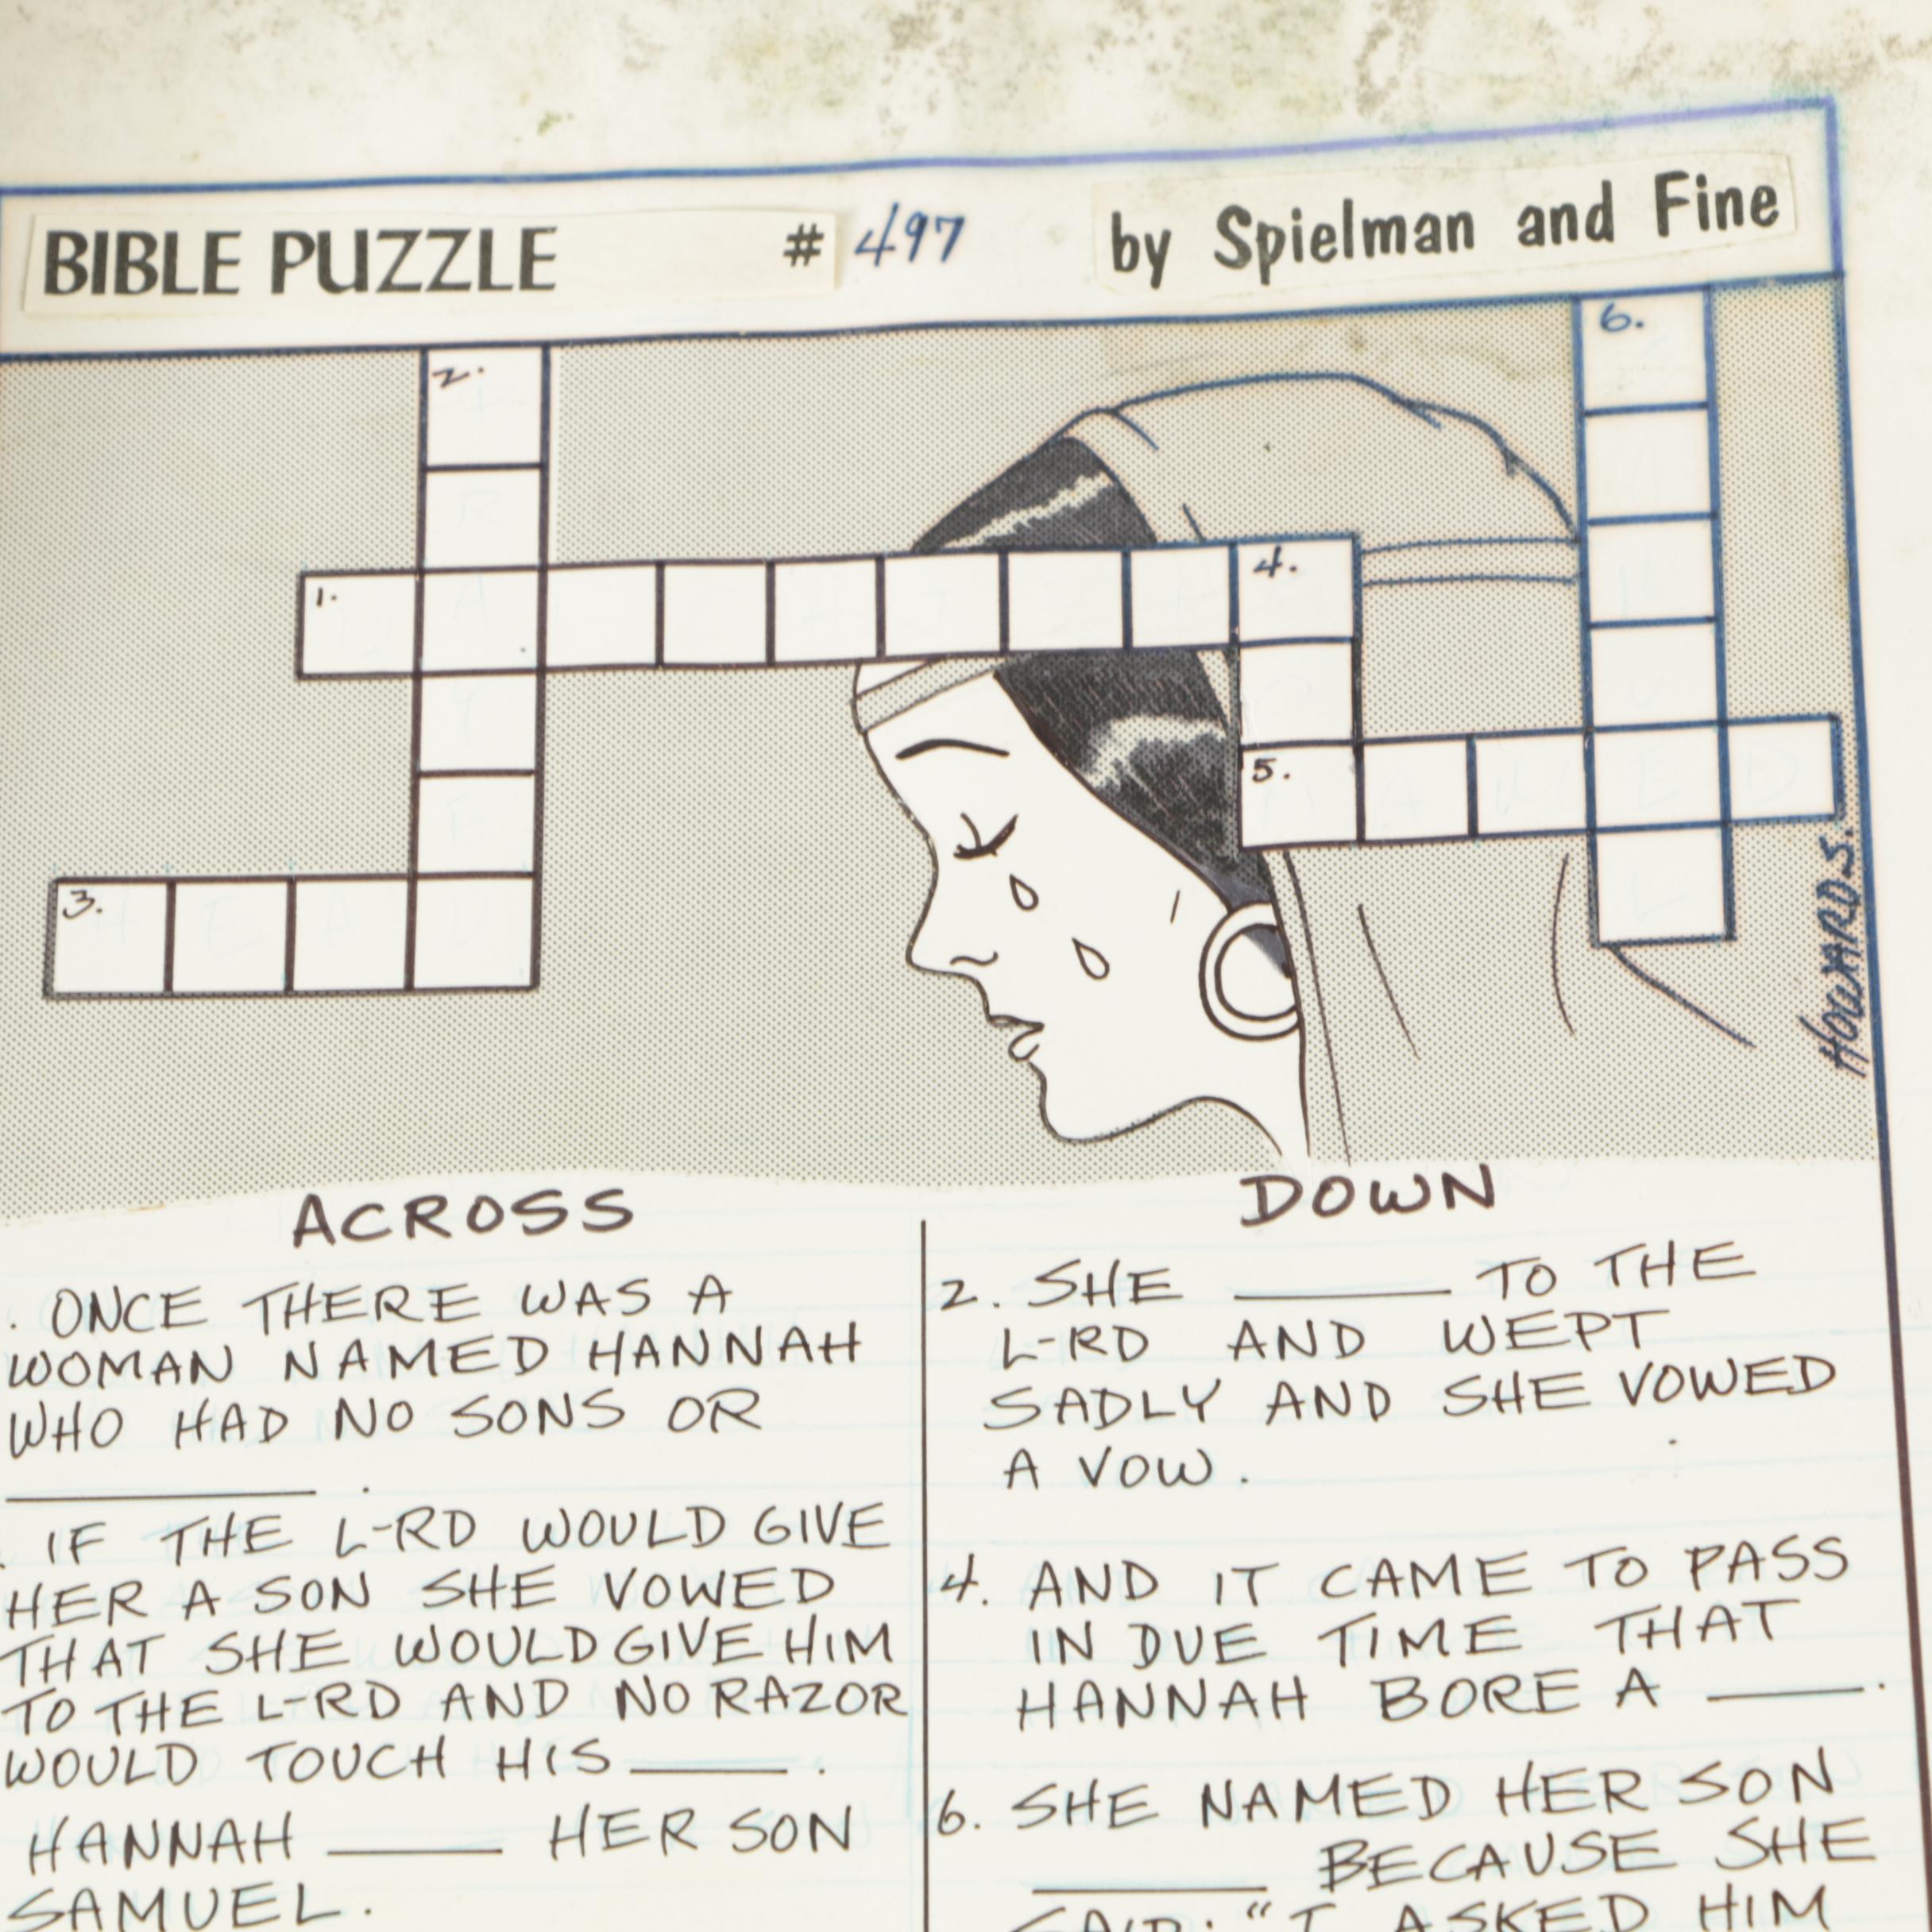 BIBLE PUZZLE # 497 by Spielman and Fine
6.
2.
1.
4.
5.
A W E D
3.
H E A D
HOWARD S.
ACROSS
. ONCE THERE WAS A
WOMAN NAMED HANNAH
WHO HAD NO SONS OR
.
. IF THE L-RD WOULD GIVE
HER A SON SHE VOWED
THAT SHE WOULD GIVE HIM
TO THE L-RD AND NO RAZOR
WOULD TOUCH HIS ____.
HANNAH ____ HER SON
SAMUEL.
DOWN
2. SHE ____ TO THE
L-RD AND WEPT
SADLY AND SHE VOWED
A VOW.
4. AND IT CAME TO PASS
IN DUE TIME THAT
HANNAH BORE A ____.
6. SHE NAMED HER SON
____ BECAUSE SHE
SAID: "I ASKED HIM